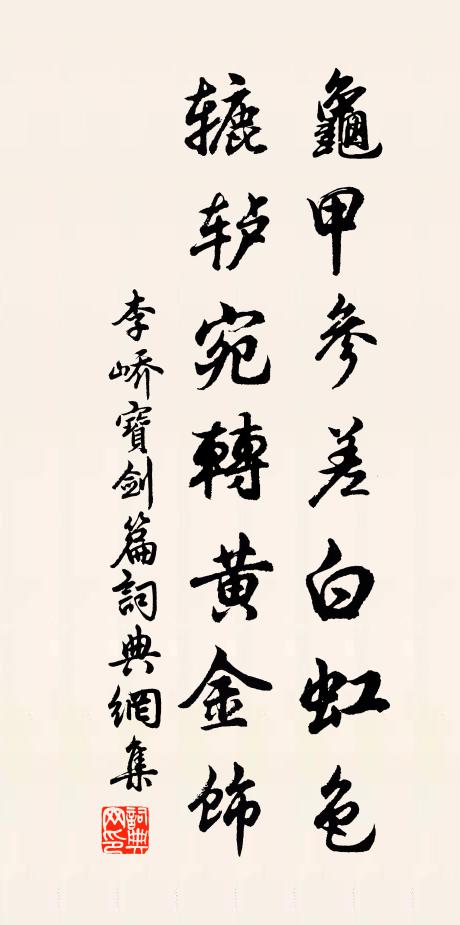 龜甲參差白虹色
辘轳宛轉黄金飾
李嶠寶劍篇詞典網集
詞典網印